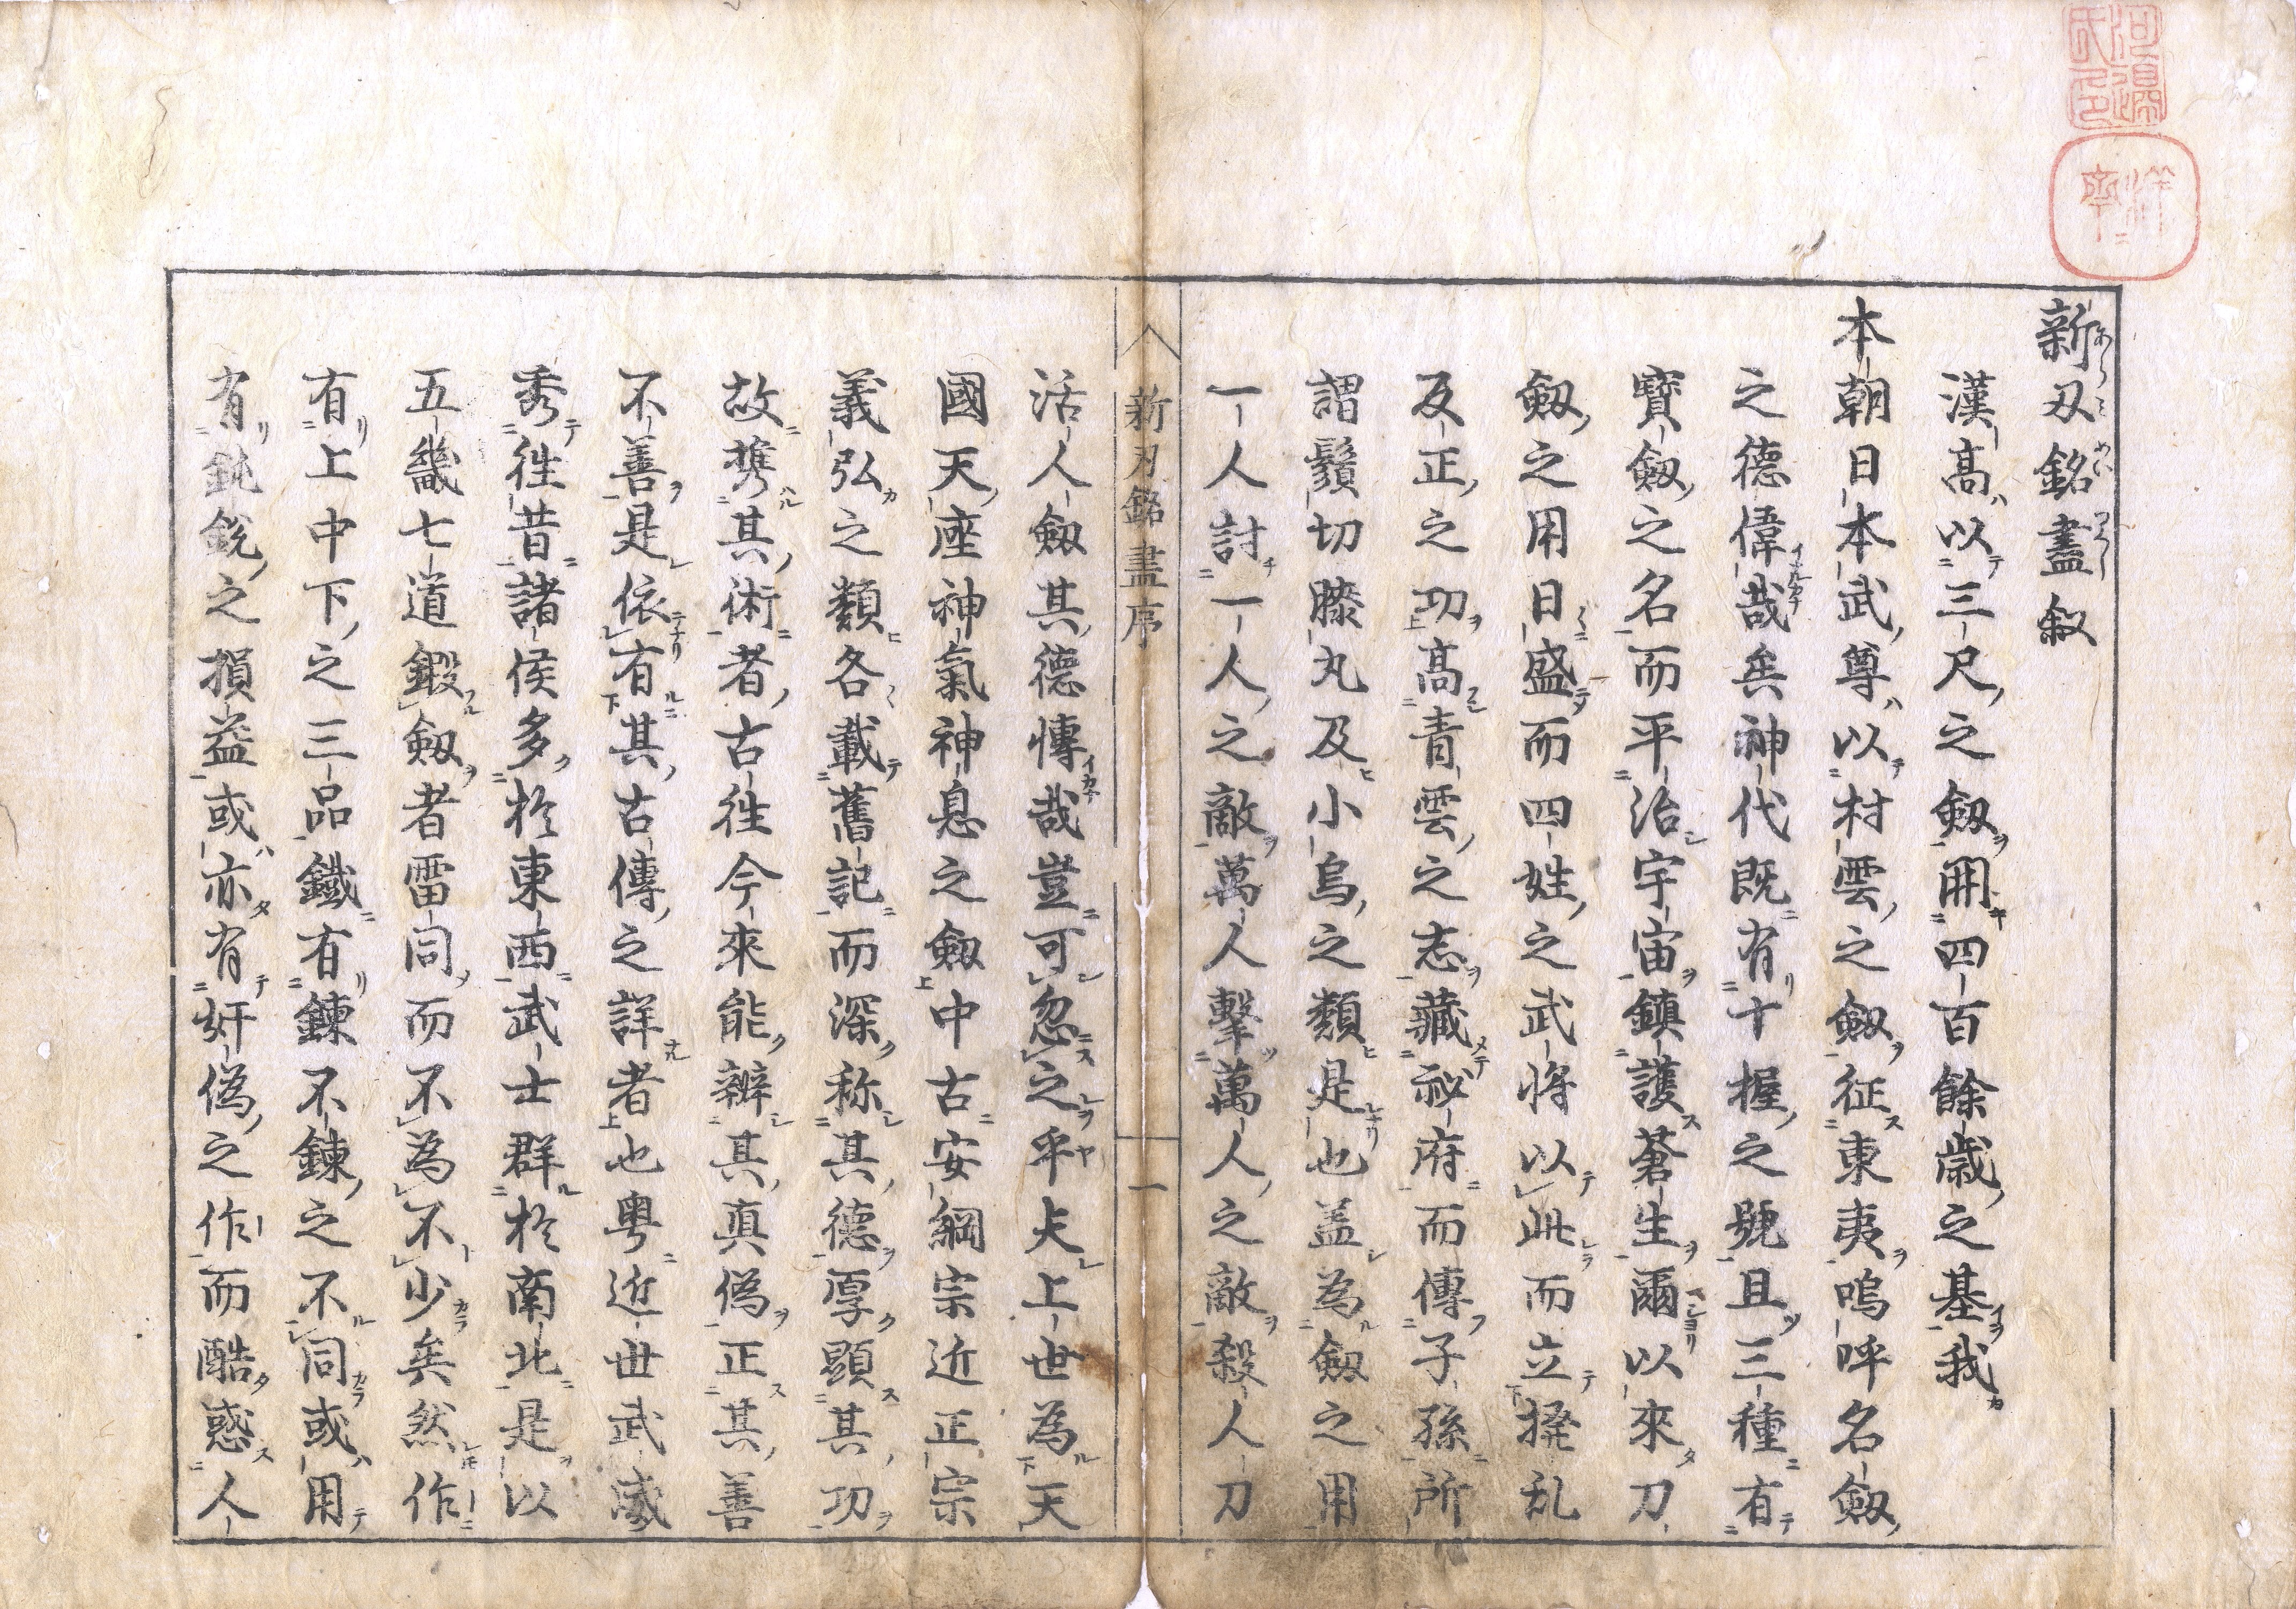 新刄銘盡叙
漢高以三尺之劔開四百餘歳之基我
本朝日本武尊以村雲之劔征東夷嗚呼名劔
之德偉哉矣神代既有十握之號且三種有
寳劔之名而平治宇宙鎮護蒼生爾以來刀
劔之用日盛而四姓之武将以此而立撥乱
反正之功高青雲之志藏祕府而傳子孫所
謂鬚切膝丸及小烏之類是也盖為劔之用
一人討一人之敵萬人擊萬人之敵殺人刀
新刃銘盡序
一
活人劔其德愽哉豈可忽之乎夫上世為天
國天座神氣神息之劔中古安綱宗近正宗
義弘之類各載舊記而深称其德厚顕其功
故携其術者古徃今來能辨其真偽正其善
不善是依有其古傳之詳者也粤近世武威
秀徃昔諸侯多於東西武士群於南北是以
五畿七道鍛劔者雷同而不為不少矣然作
有上中下之三品鐵有鍊不鍊之不同或用
有鈍鋭之損益或亦有奸偽之作而酷惑人